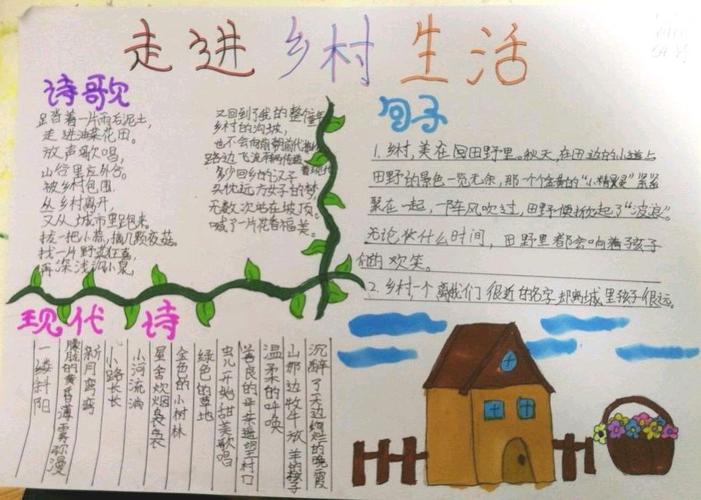 走进乡村生活
诗歌
足踏着一片雨后泥土,
走进油菜花田。
放声歌唱,
山谷里
被乡村包围
从乡村离开,
又从城市里跑来。
拔一把小蒜,摘几颗野菜
找一片野
再深浅
又回到了我的整个
乡村的沟坡,
也不会向
路边飞
多少回乡的汉子
头枕远方女子的梦
无数次站在坡顶。
喊了一片花香福美。
句子
1.乡村,美在田野里。秋天,在田边的小道上
田野的景色一览无余,那一个个金黄的“小精灵”紧紧
聚在一起,一阵风吹过,田野便掀起了“波浪”。
无论什么时间,田野里都会响着孩子
们的欢笑。
2.乡村一个离我们很近的名字却离城里孩子很远。
现代诗
沉醉了天边绚烂的晚霞
山那边牧牛放羊的孩子
温柔的呼唤
善良的母亲
村口
虫儿开始甜美歌唱
绿色的草地
金色的小树林
星舍炊烟袅袅
小河流淌
小路长长
新月弯弯
朦胧的黄昏薄雾弥漫
一缕斜阳